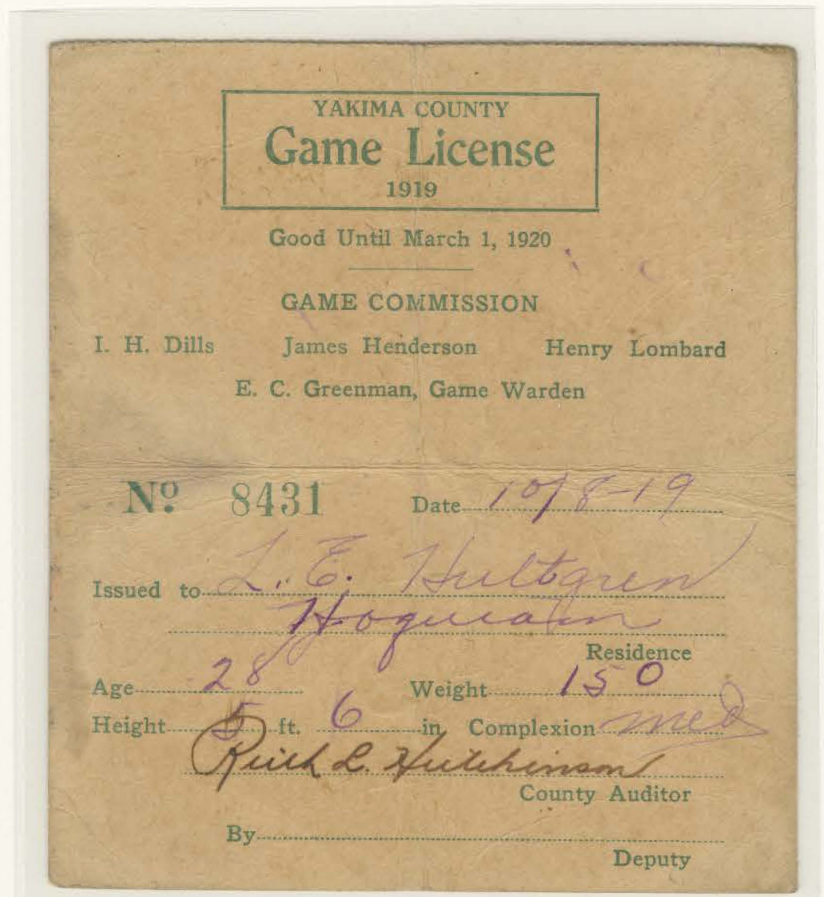 YAKIMA COUNTY
Game License
1919
Good Until March 1, 1920
GAME COMMISSION
I. H. Dills James Henderson Henry Lombard
E. C. Greenman, Game Warden
Nº 8431 Date 10/8-19
Issued to L. E. Hultgren
Hoquiam
Residence
Age 28 Weight 150
Height 5 ft. 6 in Complexion med
L. Hutchinson
County Auditor
By
Deputy